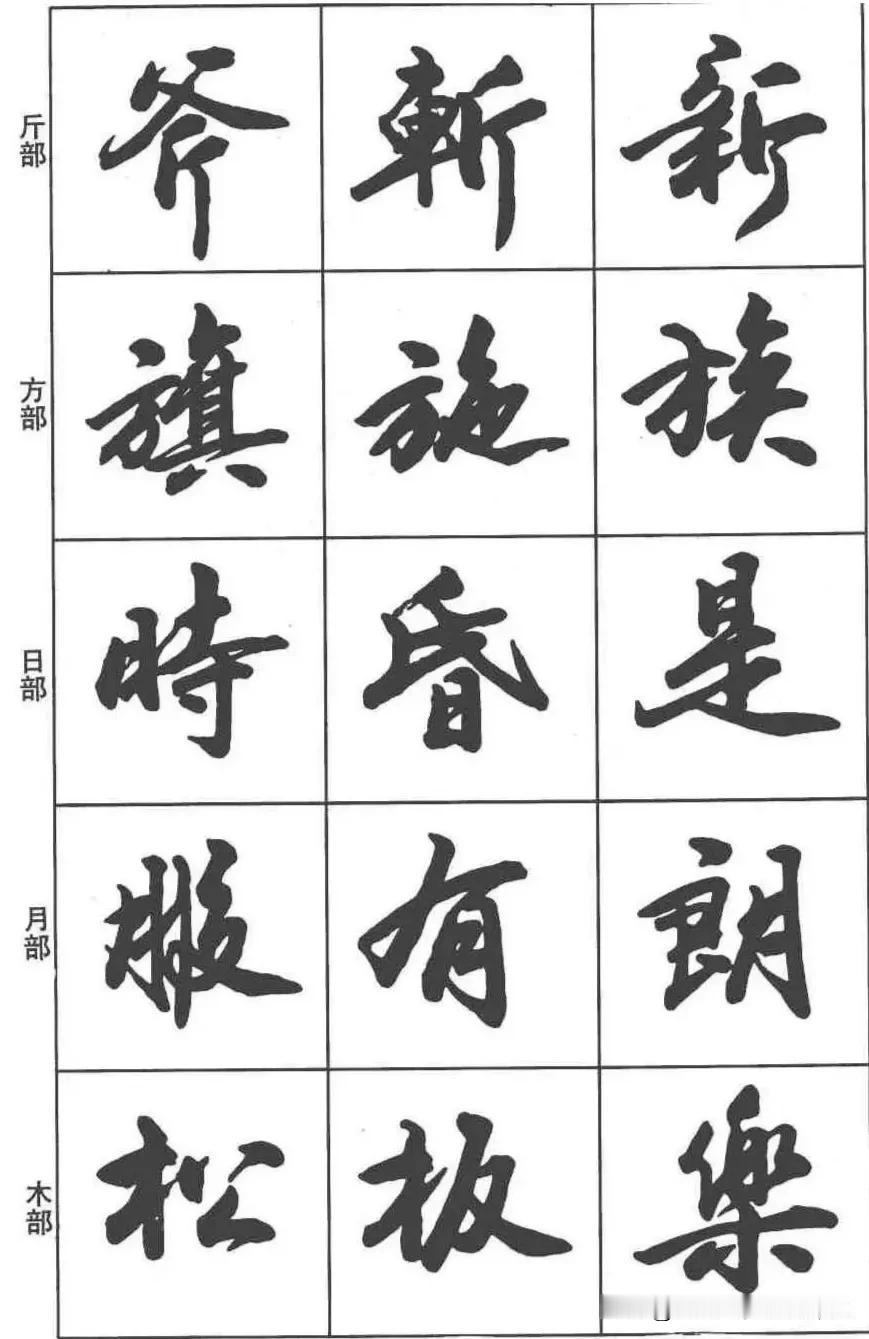 斤部 斧 斬 新
方部 旗 施 族
日部 時 昏 是
月部 服 有 朗
木部 松 板 樂